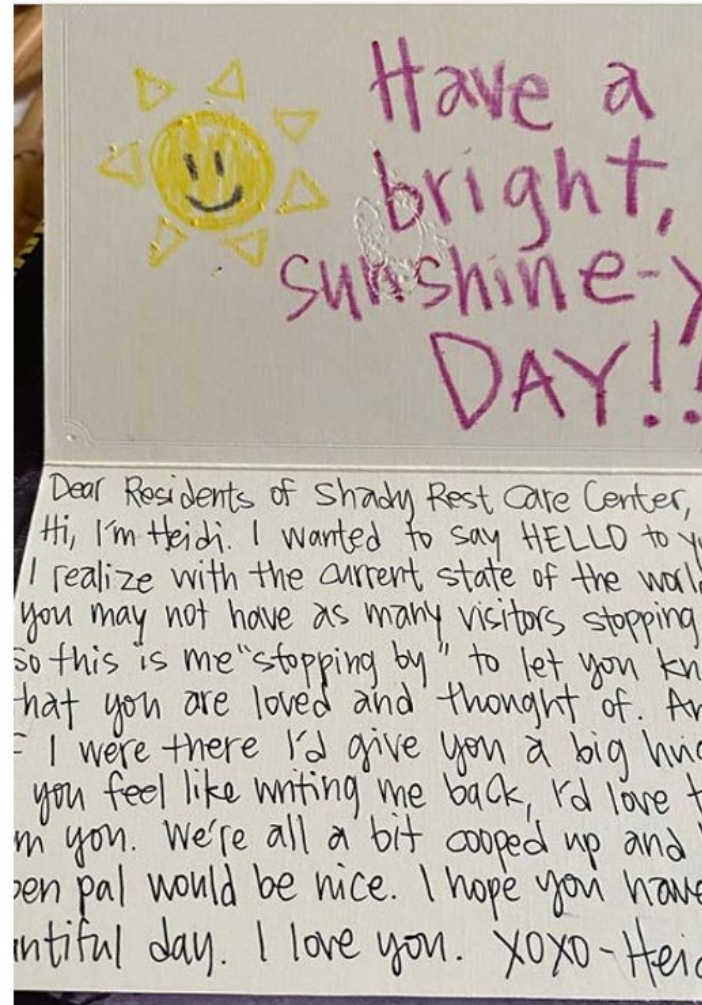 Have a
bright,
sunshine-y
DAY!!
Dear Residents of Shady Rest Care Center,
Hi, I'm Heidi. I wanted to say HELLO to
I realize with the current state of the
you may not have as many visitors stopping
so this is me "stopping by" to let you
that you are loved and thought of.
I were there I'd give you a big
you feel like writing me back, I'd love
you. We're all a bit cooped up and
pen pal would be nice. I hope you have
day. I love you. XOXO-